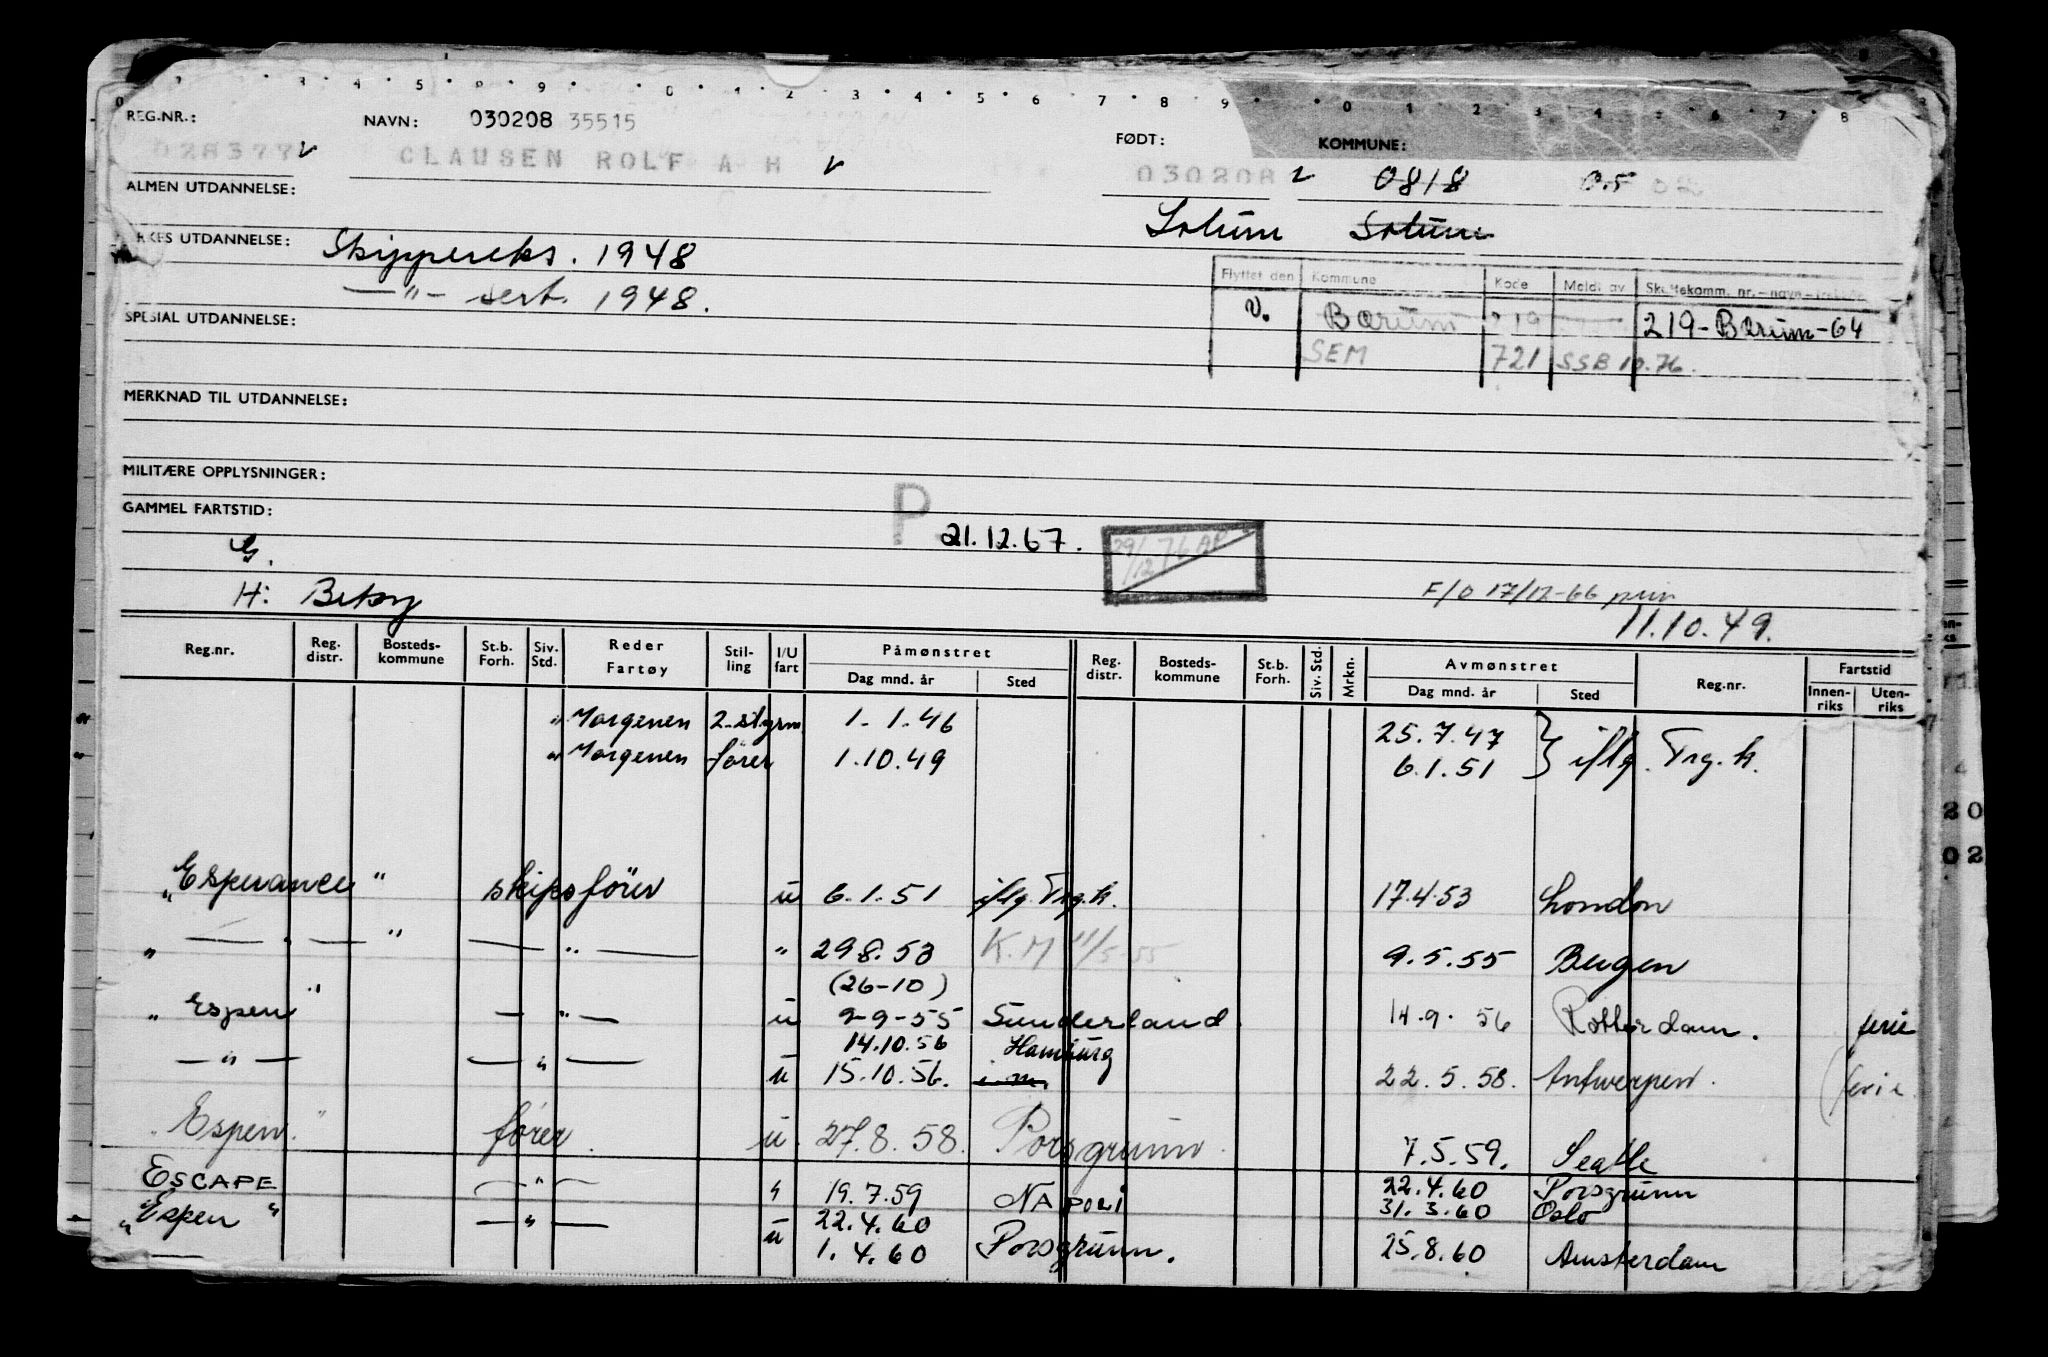 REG.NR.: NAVN: 030208 35515 FØDT: KOMMUNE:
028377 CLAUSEN ROLF A H 030208 0818 05 02
ALMEN UTDANNELSE:
Solum Solum
YRKES UTDANNELSE: Skippereks. 1948
—"— sert. 1948.
Flyttet den Kommune Kode Meldt av Skattekomm. nr.—navn—
v. Bærum 219 219-Bærum-64
SEM 721 SSB 10.76.
SPESIAL UTDANNELSE:
MERKNAD TIL UTDANNELSE:
MILITÆRE OPPLYSNINGER:
GAMMEL FARTSTID:
P 21.12.67. 29/12 76 AP
G.
H: Betsy F/O 17/12-66
11.10.49.
Reg.nr. Reg. distr. Bosteds-kommune St.b. Forh. Siv. Std. Reder Fartøy Stil-ling I/U fart Påmønstret Dag mnd. år Sted Reg. distr. Bosteds-kommune St.b. Forh. Siv. Std. Mrkn. Avmønstret Dag mnd. år Sted Reg.nr. Fartstid Innen-riks Uten-riks
" Morgenen 2. styrm 1.1.46 25.7.47
" Morgenen fører 1.10.49 6.1.51 } iflg. Trg.k.
"Esperance" skipsfører u 6.1.51 iflg. Trg.k. 17.4.53 London
" — " — " — " — " 29.8.53 K.M 11/5-55 9.5.55 Bergen
(26-10)
"Espen" — " — u 2-9-55 Sunderland 14.9.56 Rotterdam. ferie
14.10.56 Hamburg
— " — — " — u 15.10.56. 22.5.58. Antwerpen. (ferie
"Espen" fører u. 27.8.58. Porsgrunn. 7.5.59. Seatle
ESCAPE — " — " 19.7.59 NAPOLI 22.4.60 Porsgrunn
"Espen" — " — u 22.4.60 31.3.60 Oslo
1.4.60 Porsgrunn. 25.8.60 Amsterdam
20
02